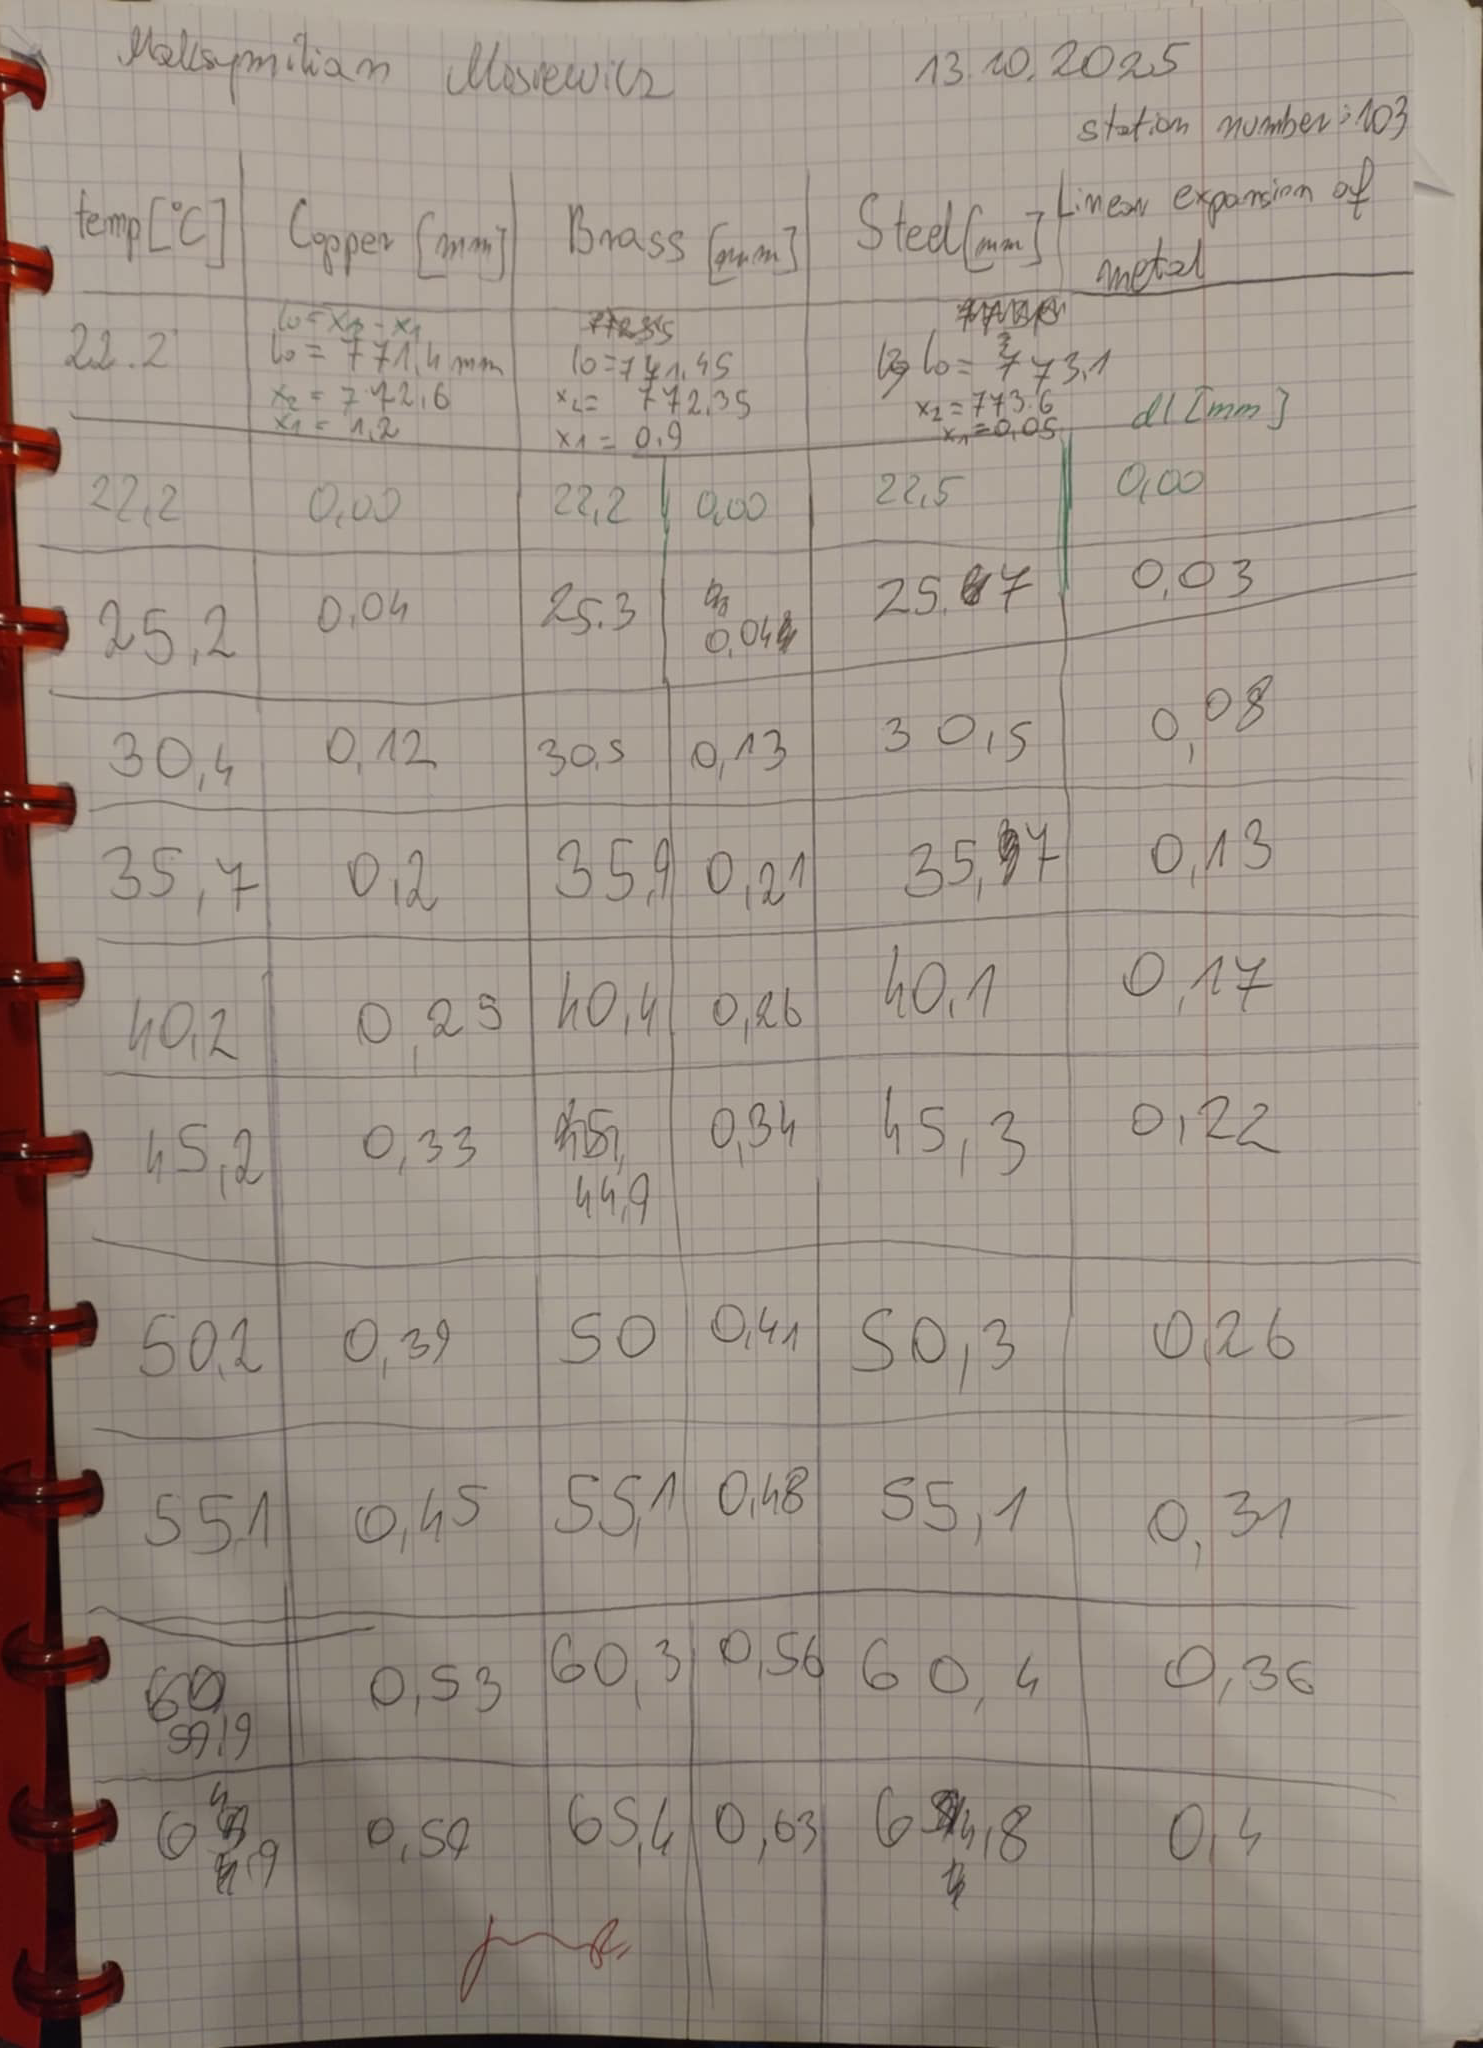 Maksymilian Mosiewicz 13.10.2025
station number: 103
temp [°C] Copper [mm] Brass [mm] Steel [mm] Linear expansion of metal
22.2
l0 = x2 - x1
l0 = 771,4 mm
x2 = 772,6
x1 = 1,2
l0 = 771,45
x2 = 772,35
x1 = 0,9
l0 = 773,1
x2 = 773.6
x1 = 0,05
dl [mm]
22,2 0,00 22,2 0,00 22,5 0,00
25,2 0,04 25.3 0,04 25.7 0,03
30,4 0,12 30,5 0,13 30,5 0,08
35,7 0,2 35,9 0,21 35,7 0,13
40,2 0,25 40,4 0,26 40,1 0,17
45,2 0,33 44,9 0,34 45,3 0,22
50,2 0,39 50 0,41 50,3 0,26
55,1 0,45 55,1 0,48 55,1 0,31
59,9 0,53 60,3 0,56 60,4 0,36
64,9 0,59 65,4 0,63 64,8 0,4